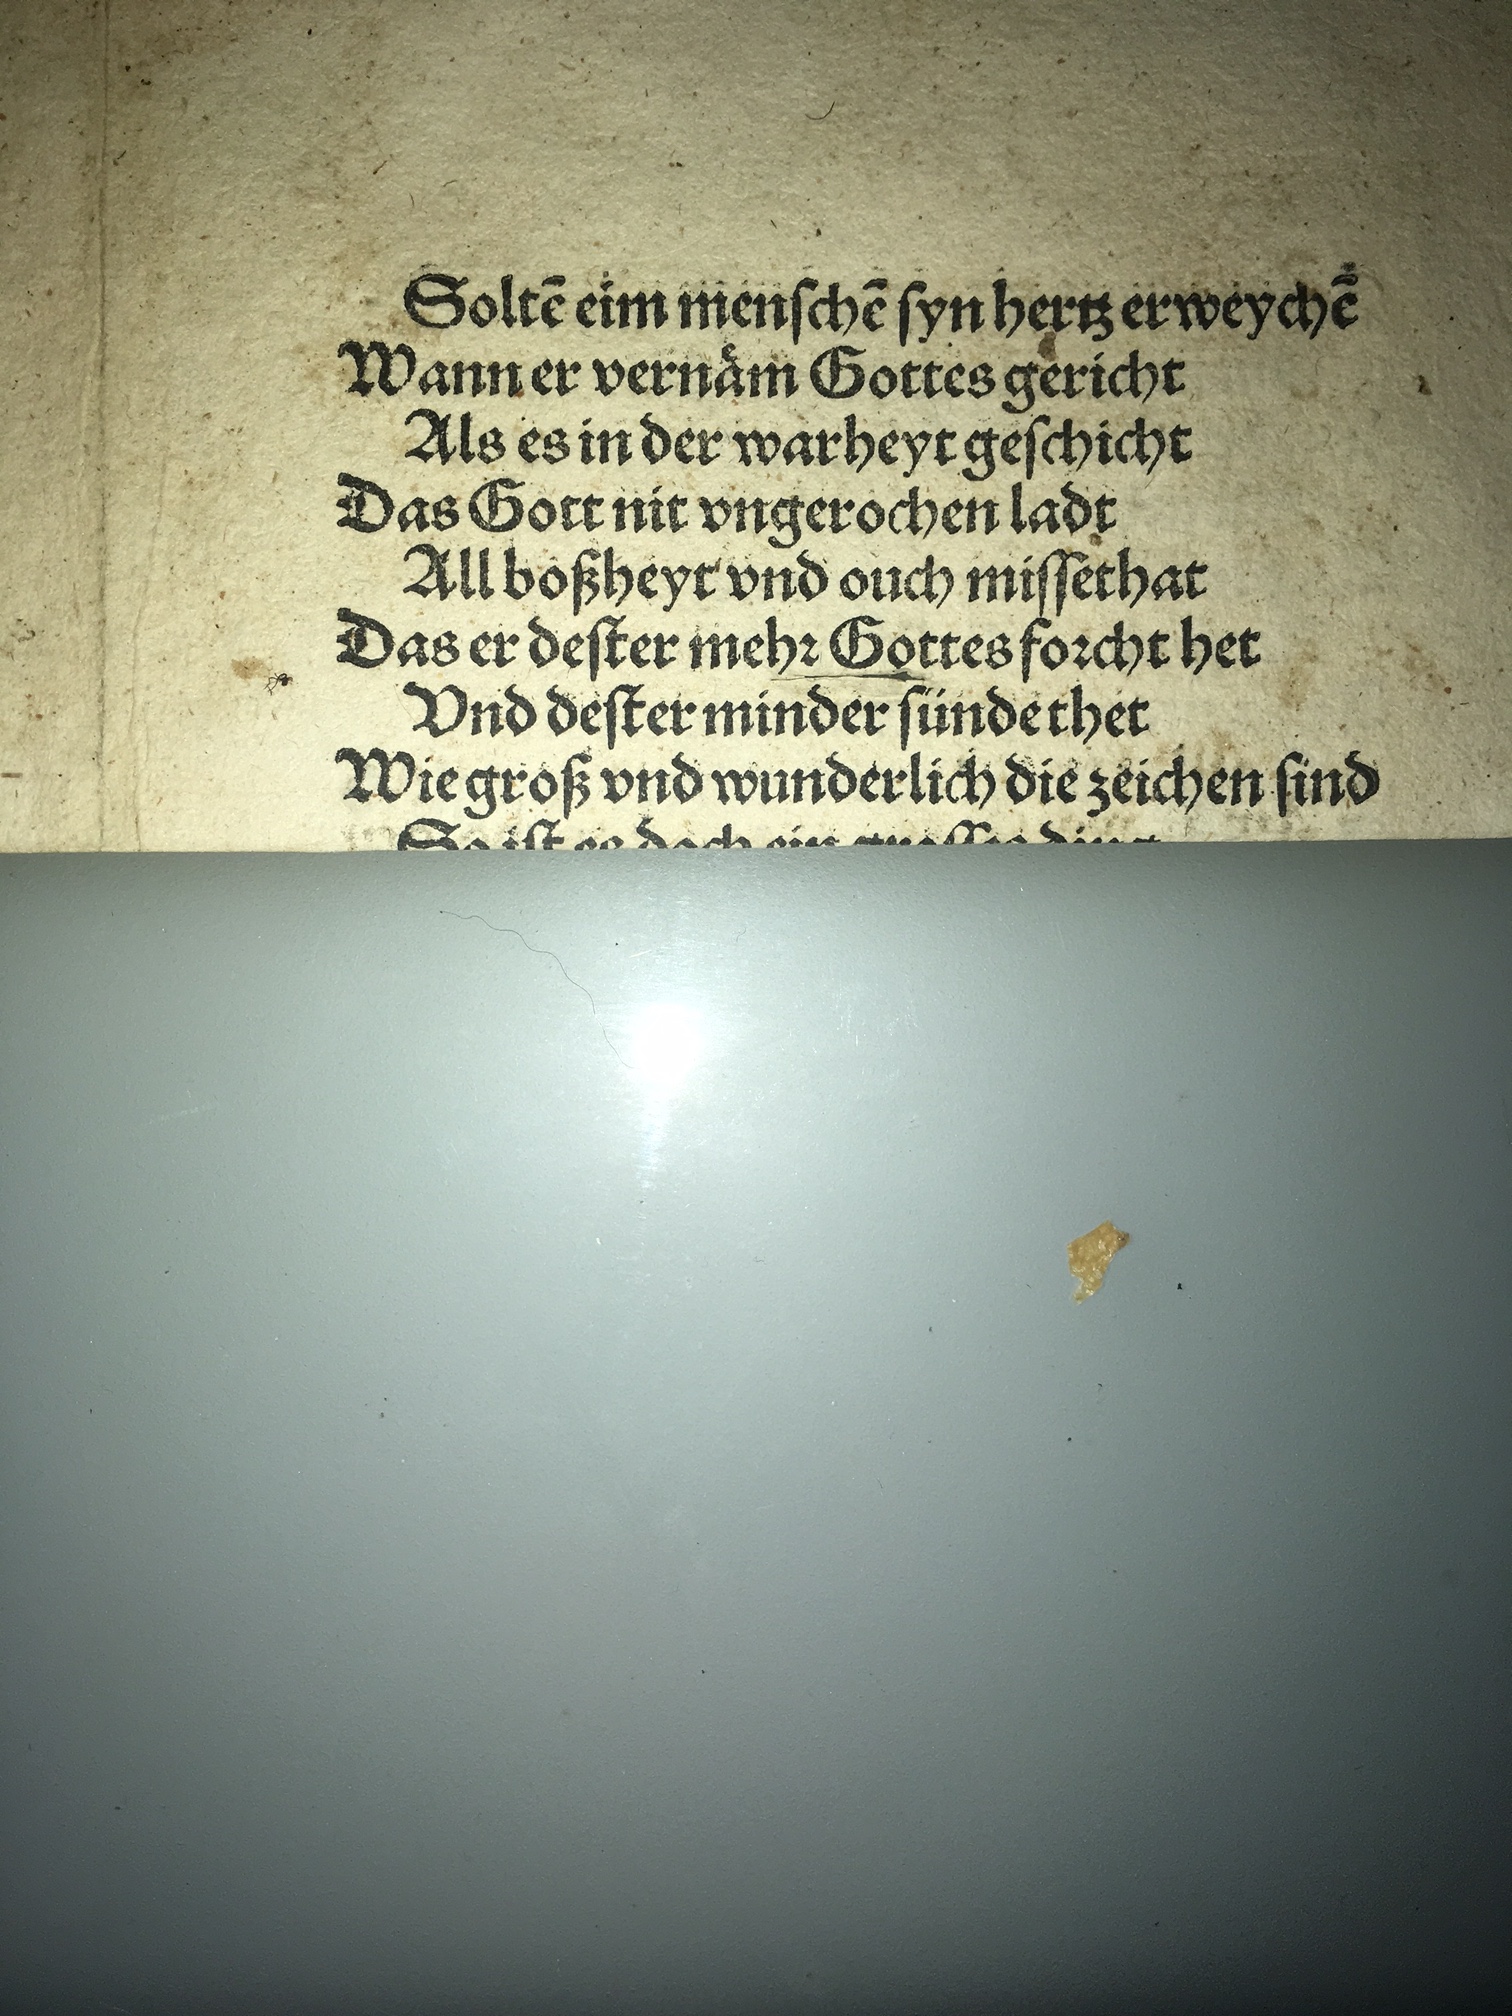 Soltē eim menſchē ſyn hertz erweychē
Wann er vernaͤm Gottes gericht
Als es in der warheyt geſchicht
Das Gott nit vngerochen ladt
All boßheyt vnd ouch miſſethat
Das er deſter mehꝛ Gottes foꝛcht het
Vnd deſter minder ſünde thet
Wie groß vnd wunderlich die zeichen ſind
So iſt es doch ein groſſes ding